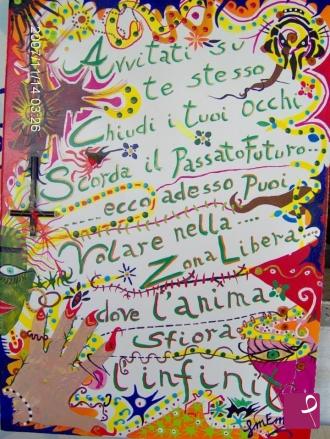 2007/11/14 03:26
Avvitati su
te stesso
Chiudi i tuoi occhi
Scorda il Passato Futuro...
...ecco, adesso Puoi
Volare nella....
Zona Libera...
dove l'anima
sfiora
l'infinit